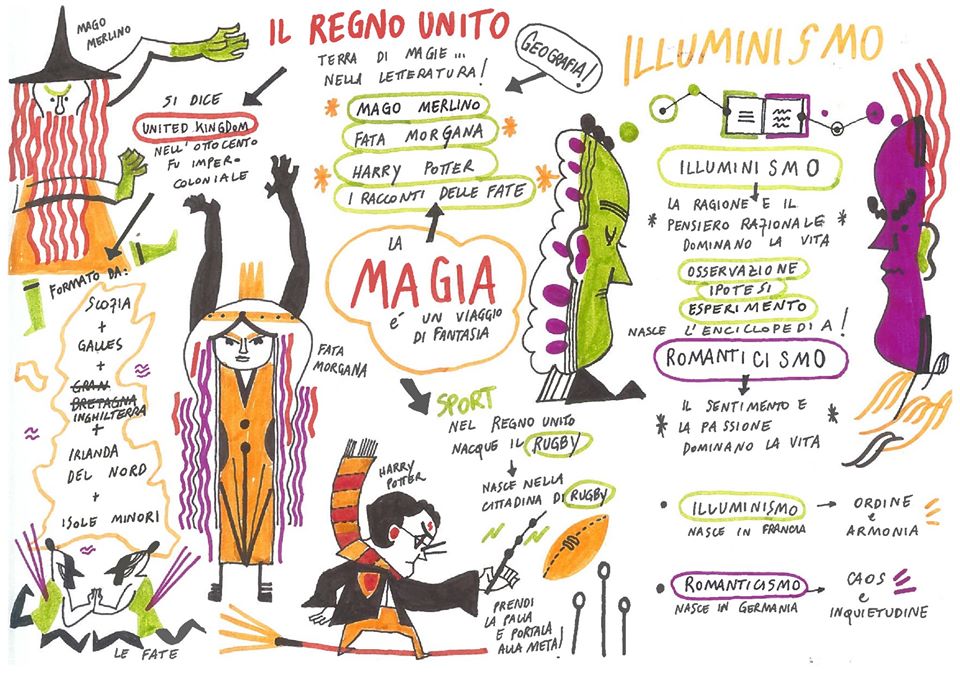 MAGO
MERLINO
IL REGNO UNITO
TERRA DI MAGIE...
NELLA LETTERATURA!
GEOGRAFIA!
MAGO MERLINO
FATA MORGANA
HARRY POTTER
I RACCONTI DELLE FATE
SI DICE
UNITED KINGDOM
NELL'OTTOCENTO
FU IMPERO
COLONIALE
FORMATO DA:
SCOZIA
+
GALLES
+
GRAN
BRETAGNA
INGHILTERRA
+
IRLANDA
DEL NORD
+
ISOLE MINORI
LE FATE
LA
MAGIA
é UN VIAGGIO
DI FANTASIA
FATA
MORGANA
HARRY
POTTER
SPORT
NEL REGNO UNITO
NACQUE IL RUGBY
NASCE NELLA
CITTADINA DI RUGBY
PRENDI
LA PALLA
E PORTALA
ALLA META!
ILLUMINISMO
ILLUMINISMO
LA RAGIONE E IL
PENSIERO RAZIONALE
DOMINANO LA VITA
OSSERVAZIONE
IPOTESI
ESPERIMENTO
NASCE L'ENCICLOPEDIA!
ROMANTICISMO
IL SENTIMENTO E
LA PASSIONE
DOMINANO LA VITA
ILLUMINISMO
NASCE IN FRANCIA
ORDINE
e
ARMONIA
ROMANTICISMO
NASCE IN GERMANIA
CAOS
e
INQUIETUDINE